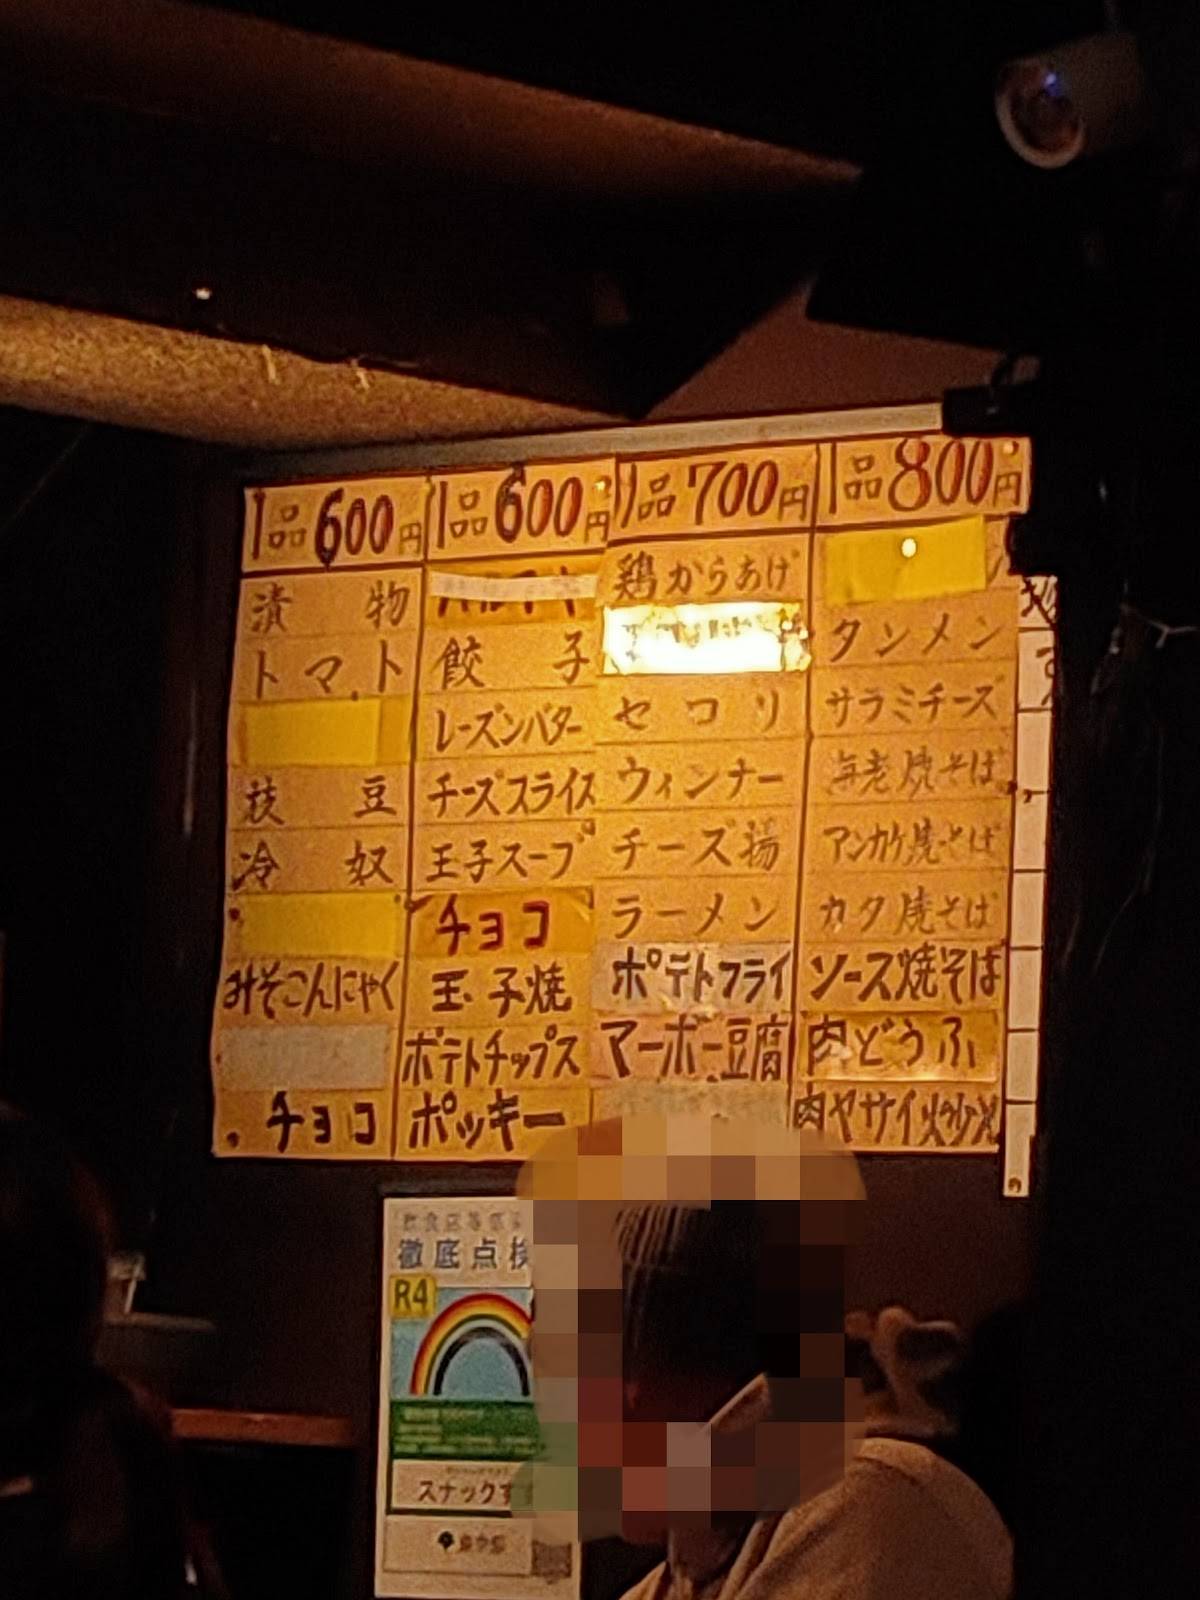 1品600円
漬物
トマト
枝豆
冷奴
みそこんにゃく
チョコ
1品600円
餃子
レーズンバター
チーズスライス
玉子スープ
チョコ
玉子焼
ポテトチップス
ポッキー
1品700円
鶏からあげ
セロリ
ウィンナー
チーズ揚
ラーメン
ポテトフライ
マーボー豆腐
1品800円
タンメン
サラミチーズ
海老焼そば
アンカケ焼そば
カタ焼そば
ソース焼そば
肉どうふ
肉ヤサイ炒メ
徹底点検
R4
スナックす